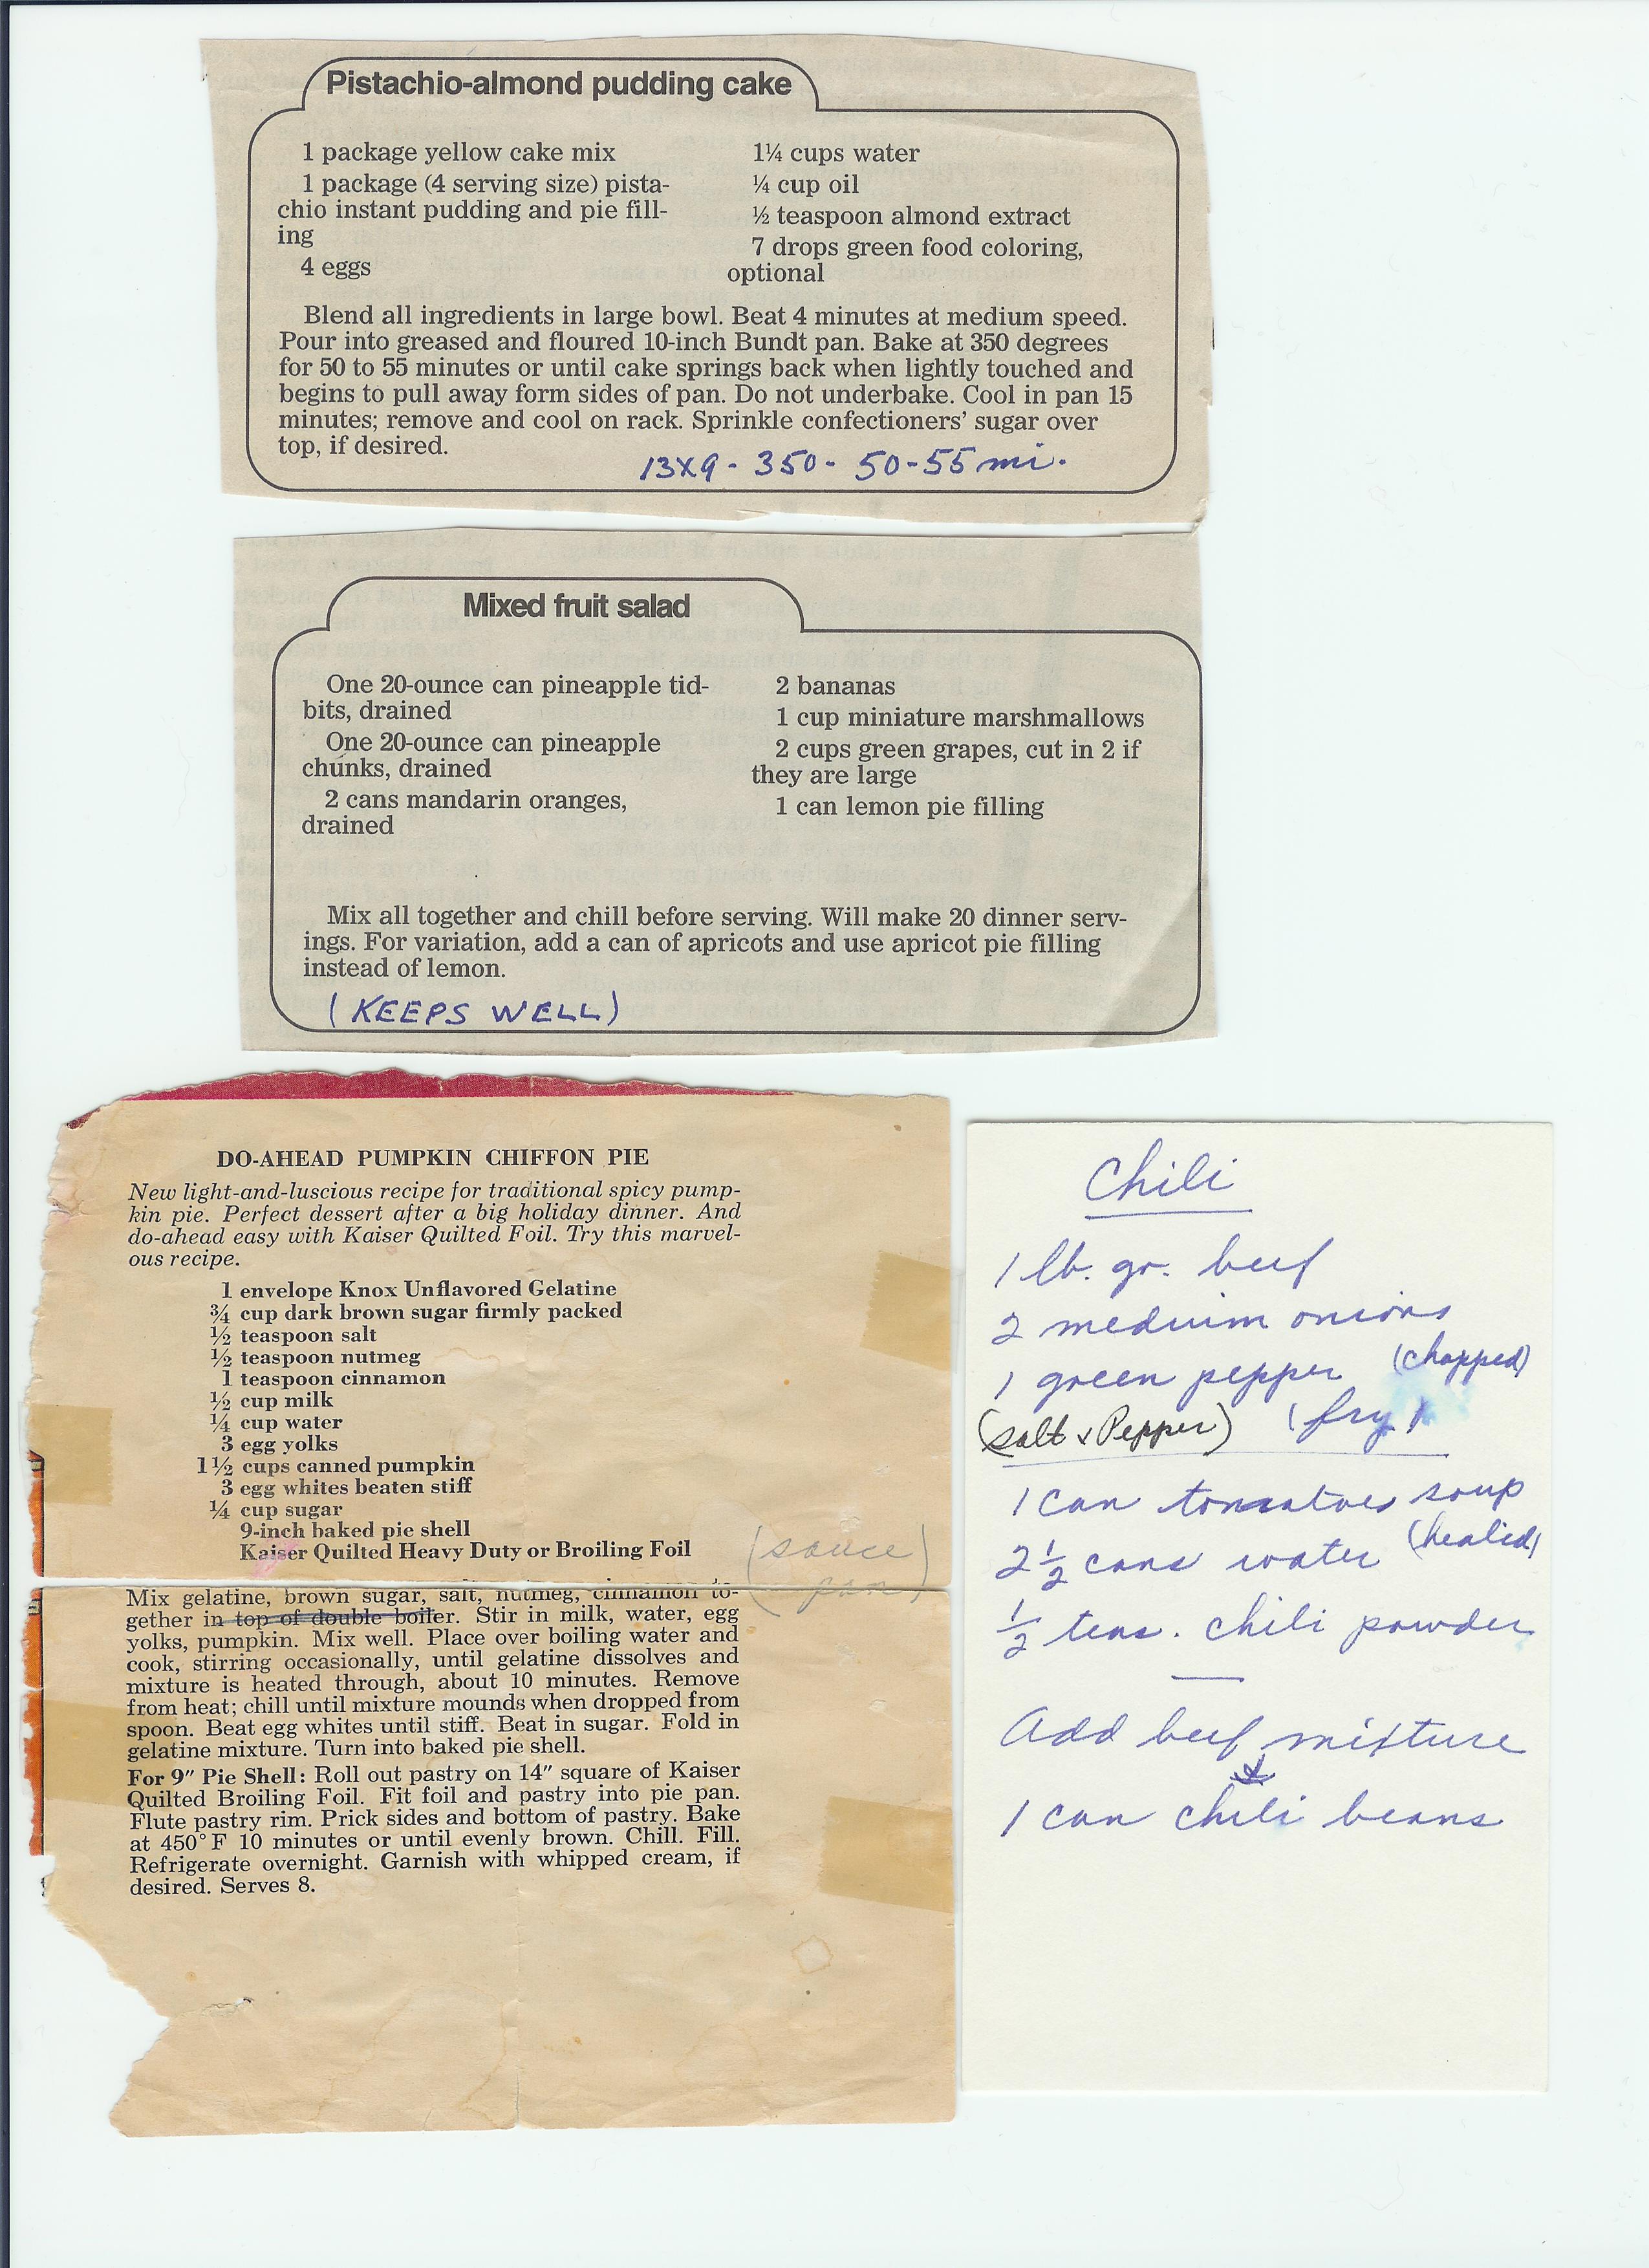 Pistachio-almond pudding cake
1 package yellow cake mix
1 package (4 serving size) pista-
chio instant pudding and pie fill-
ing
4 eggs
1¼ cups water
¼ cup oil
½ teaspoon almond extract
7 drops green food coloring,
optional
Blend all ingredients in large bowl. Beat 4 minutes at medium speed.
Pour into greased and floured 10-inch Bundt pan. Bake at 350 degrees
for 50 to 55 minutes or until cake springs back when lightly touched and
begins to pull away form sides of pan. Do not underbake. Cool in pan 15
minutes; remove and cool on rack. Sprinkle confectioners' sugar over
top, if desired.
13x9 - 350 - 50-55 mi.
Mixed fruit salad
One 20-ounce can pineapple tid-
bits, drained
One 20-ounce can pineapple
chunks, drained
2 cans mandarin oranges,
drained
2 bananas
1 cup miniature marshmallows
2 cups green grapes, cut in 2 if
they are large
1 can lemon pie filling
Mix all together and chill before serving. Will make 20 dinner serv-
ings. For variation, add a can of apricots and use apricot pie filling
instead of lemon.
(KEEPS WELL)
DO-AHEAD PUMPKIN CHIFFON PIE
New light-and-luscious recipe for traditional spicy pump-
kin pie. Perfect dessert after a big holiday dinner. And
do-ahead easy with Kaiser Quilted Foil. Try this marvel-
ous recipe.
1 envelope Knox Unflavored Gelatine
¾ cup dark brown sugar firmly packed
½ teaspoon salt
½ teaspoon nutmeg
1 teaspoon cinnamon
½ cup milk
¼ cup water
3 egg yolks
1½ cups canned pumpkin
3 egg whites beaten stiff
¼ cup sugar
9-inch baked pie shell
Kaiser Quilted Heavy Duty or Broiling Foil
(sauce
pan)
Mix gelatine, brown sugar, salt, nutmeg, cinnamon to-
gether in top of double boiler. Stir in milk, water, egg
yolks, pumpkin. Mix well. Place over boiling water and
cook, stirring occasionally, until gelatine dissolves and
mixture is heated through, about 10 minutes. Remove
from heat; chill until mixture mounds when dropped from
spoon. Beat egg whites until stiff. Beat in sugar. Fold in
gelatine mixture. Turn into baked pie shell.
For 9″ Pie Shell: Roll out pastry on 14″ square of Kaiser
Quilted Broiling Foil. Fit foil and pastry into pie pan.
Flute pastry rim. Prick sides and bottom of pastry. Bake
at 450° F 10 minutes or until evenly brown. Chill. Fill.
Refrigerate overnight. Garnish with whipped cream, if
desired. Serves 8.
Chili
1 lb. gr. beef
2 medium onions
1 green pepper (chopped)
(salt & Pepper) (fry)
1 can tomatoes soup
2½ cans water (heated)
½ teas. chili powder
Add beef mixture
&
1 can chili beans